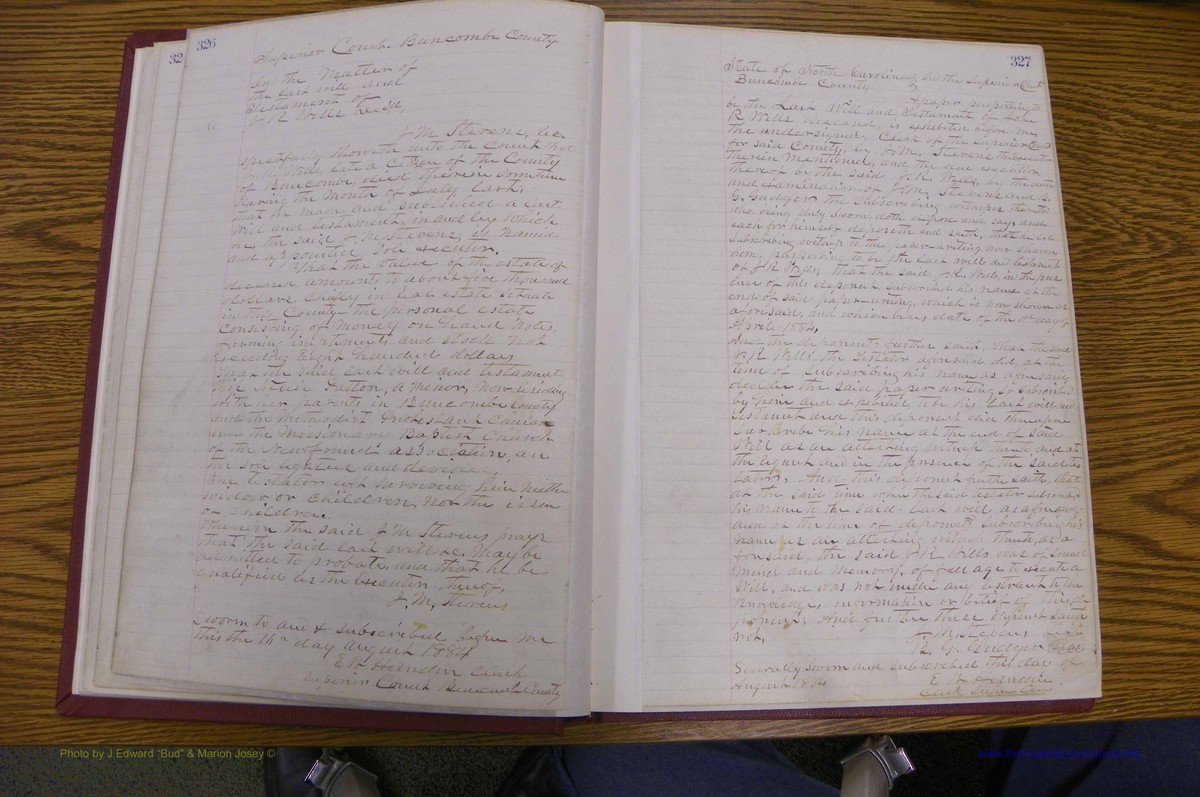 32
326
Superior Court Buncombe County
In the Matter of
the last will and
Testament of
J.R. Wells Dec'd,
J. M. Stevens, res
pectfully showeth unto the Court that
Wells, late a Citizen of the County
of Buncombe, died therein sometime
during the Month of July last,
that he made and published a last
will and testament, in and by which
the said J. M. Stevens, is named
and appointed Sole executor.
That the value of the estate of
deceased amounts to about five thousand
dollars, Chiefly in real estate situate
in this County the personal estate
consisting of money on hand Notes,
farming implements and stock not
exceeding eight hundred dollars
That the said last will and testament
Patton, a minor, now residing
with her parents in Buncombe County
and the Methodist Protestant Church
and the Missionary Baptist Church
of the Newfound association, are
the sole legatees and devisees,
the testator not having him neither
widow or children, nor the issue
of children.
Therefore the said J. M. Stevens prays
that the said last will &c. may be
admitted to probate and that he be
qualified as the executor thereof,
J. M. Stevens
Sworn to and subscribed before me
this the 16th day august 1884
E W Herndon Clerk
Superior Court Buncombe County
327
State of North Carolina } In the Superior Court
Buncombe County }
A paper purporting to
be the Last Will and Testament of
R Wells deceased, is exhibited before me,
the undersigned, Clerk of the Superior Court
for said County, by J. M. Stevens the executor
therein mentioned, and the due execution
thereof by the said J. R. Wells, by the oath
and examination of J. M. Stevens and
G. Gudger the subscribing witnesses thereto
who being duly sworn, doth depose and say, and
each for himself deposeth and saith, that he is a
subscribing witness to the paper-writing now shown
him, purporting to be the last will and testament
of J R Wells, that the said J. R. Wells, in the pres
ence of this deponent, subscribed his name at the
end of said paper-writing, which is now shown as
aforesaid, and which bears date of the day of
April 1884,
And the deponent further saith, that the said
J. R. Wells the testator aforesaid did, at the
time of subscribing his name as aforesaid
declare the said paper writing so subscribed
by him and exhibited, to be his last will and
testament and this deponent did thereupon
subscribe his name at the end of said
Will as an attesting witness thereto and at
the request and in the presence of the said tes
tator, And this deponent further saith, that
at the said time when the said testator subscribed
his name to the said last will as aforesaid
and at the time of deponent subscribing his
name as an attesting witness thereto, as a
foresaid, the said J R. Wells was of sound
mind and memory, of full age to execute a
will, and was not under any restraint to the
knowledge, information or belief of this de
ponent; And further these deponent saith
not,
J. M. Stevens
R. G. Gudger
Severally sworn and subscribed this day of
August 1884
E W Herndon
Clerk
Photo by J Edward "Bud" & Marion Josey ©